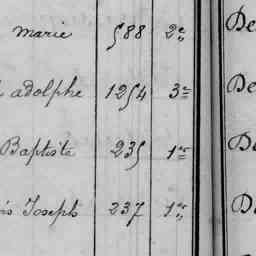 marie 588 2e De
adolphe 1254 3e De
Baptiste 235 1er De
Joseph 237 1er De